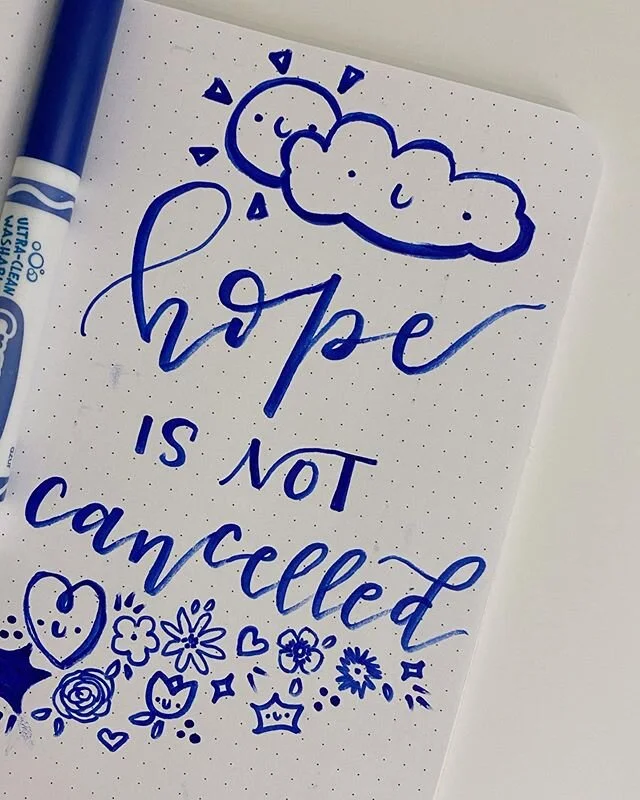 hope
IS NOT
cancelled
ULTRA-CLEAN